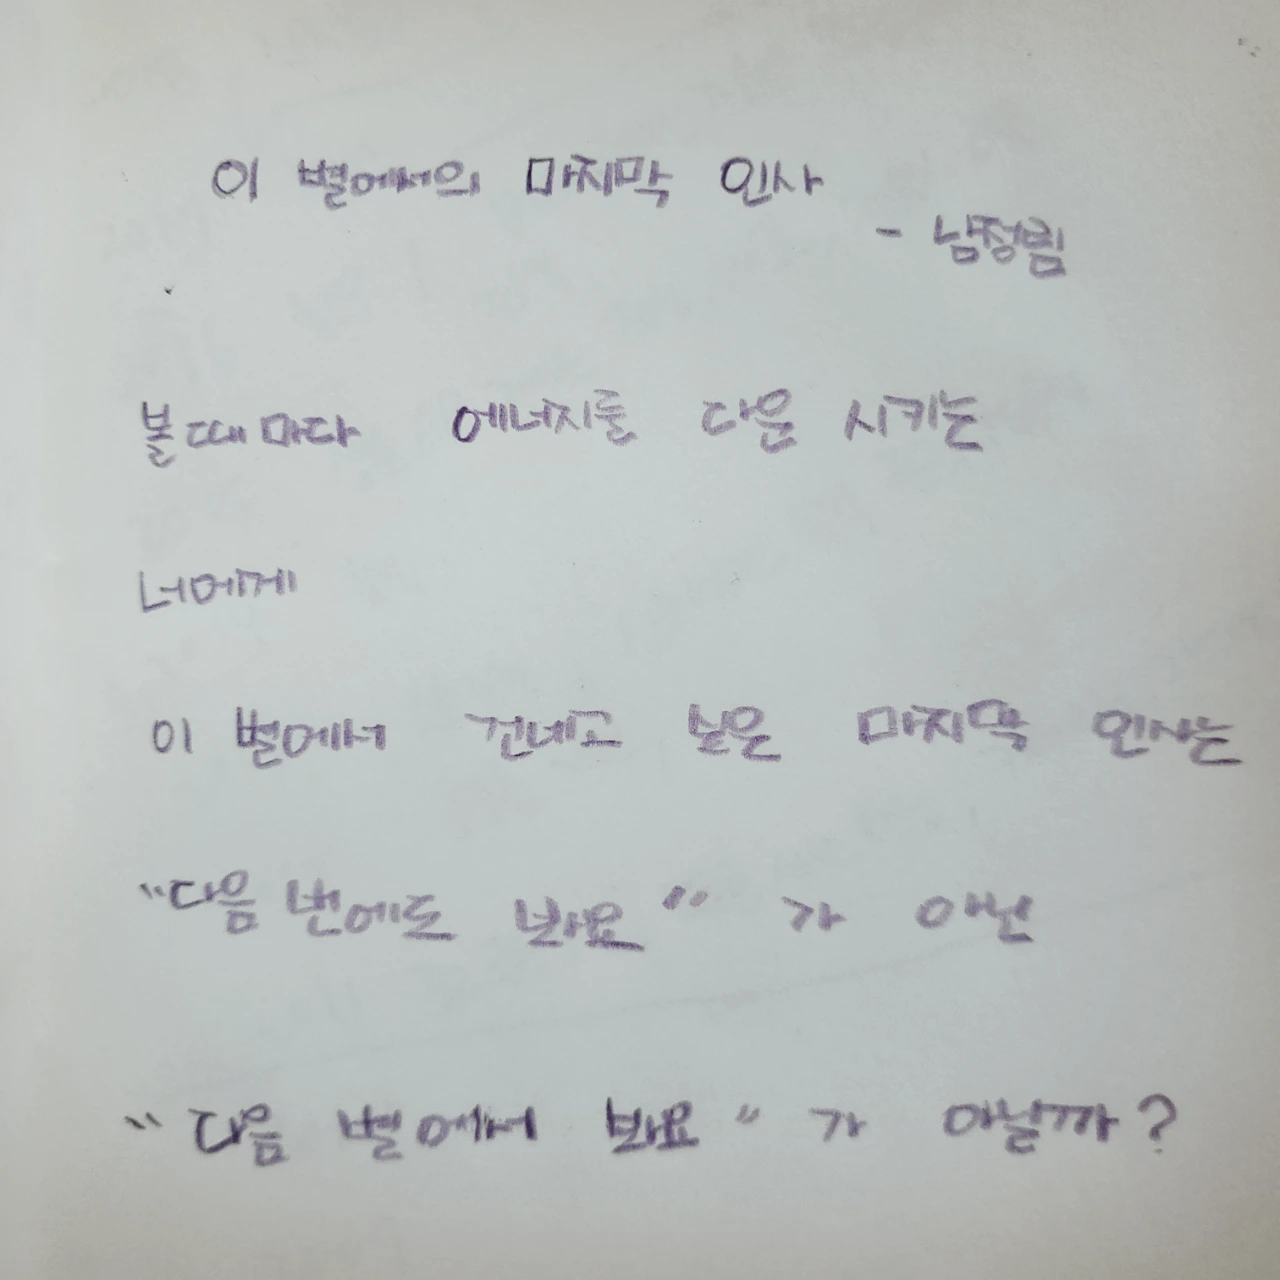 이 별에서의 마지막 인사
- 남정림
볼때마다 에너지를 다운 시키는
너에게
이 별에서 건네고 싶은 마지막 인사는
"다음 번에도 봐요" 가 아닌
"다음 별에서 봐요" 가 아닐까?